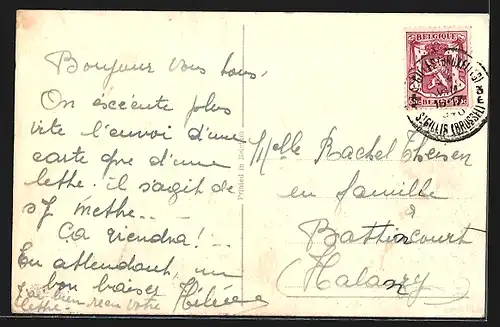 Bonjour vous tous,
On exécute plus
vite l'envoi d'une
carte que d'une
lettre. il s'agit de
s'y mettre...
Ça viendra!...
En attendant, un
bon baiser
J'ai bien reçu votre
lettre.
Printed in Belgium
Melle Rachel
en famille
à
Battincourt
Halanzy
BELGIQUE
BELGIË
ST GILLIS (BRUSSEL)